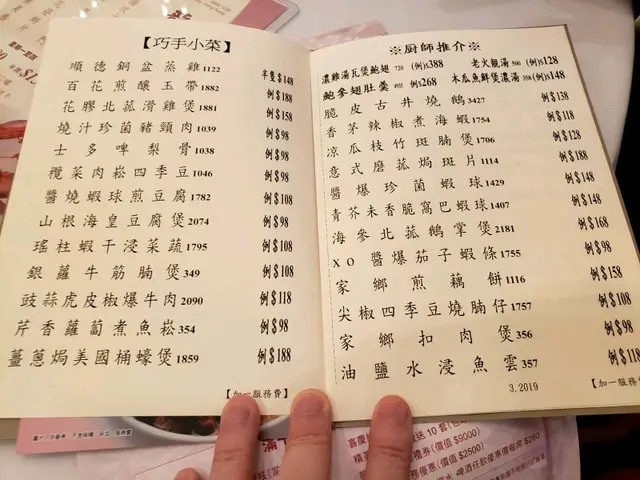 【巧手小菜】
順德銅盆蒸雞1122 半隻$148
百花煎釀玉帶1882 例$188
花膠北菰滑雞煲1881 例$158
燒汁珍菌豬頸肉1039 例$98
士多啤梨骨1038 例$98
欖菜肉崧四季豆1046 例$98
醬燒蝦球煎豆腐1782 例$108
山根海皇豆腐煲2074 例$98
瑤柱蝦干浸菜蔬1795 例$108
銀蘿牛筋腩煲349 例$108
豉蒜虎皮椒爆牛肉2090 例$118
芹香蘿蔔煮魚崧354 例$98
薑蔥焗美國桶蠔煲1859 例$188
【加一服務費】
※廚師推介※
濃雞湯瓦煲鮑翅 720 (例)$388 老火靚湯 500 (例)$128
鮑參翅肚羮 4935 例$268 木瓜魚鮮煲濃湯 358(例)$148
脆皮古井燒鵝3427 例$138
香茅辣椒煮海蝦1754 例$118
凉瓜枝竹斑腩煲1706 例$128
意式磨菰焗斑片1114 例$188
醬爆珍菌蝦球1429 例$148
青芥末香脆窩巴蝦球1407 例$148
海參北菰鵝掌煲2181 例$168
XO醬爆茄子蝦條1755 例$98
家鄉煎藕餅1116 例$158
尖椒四季豆燒腩仔1757 例$108
家鄉扣肉煲356 例$98
油鹽水浸魚雲357 例$118
3.2019 【加一服務費】
送10套
禮券 (價值$9000)
(價值$2500)